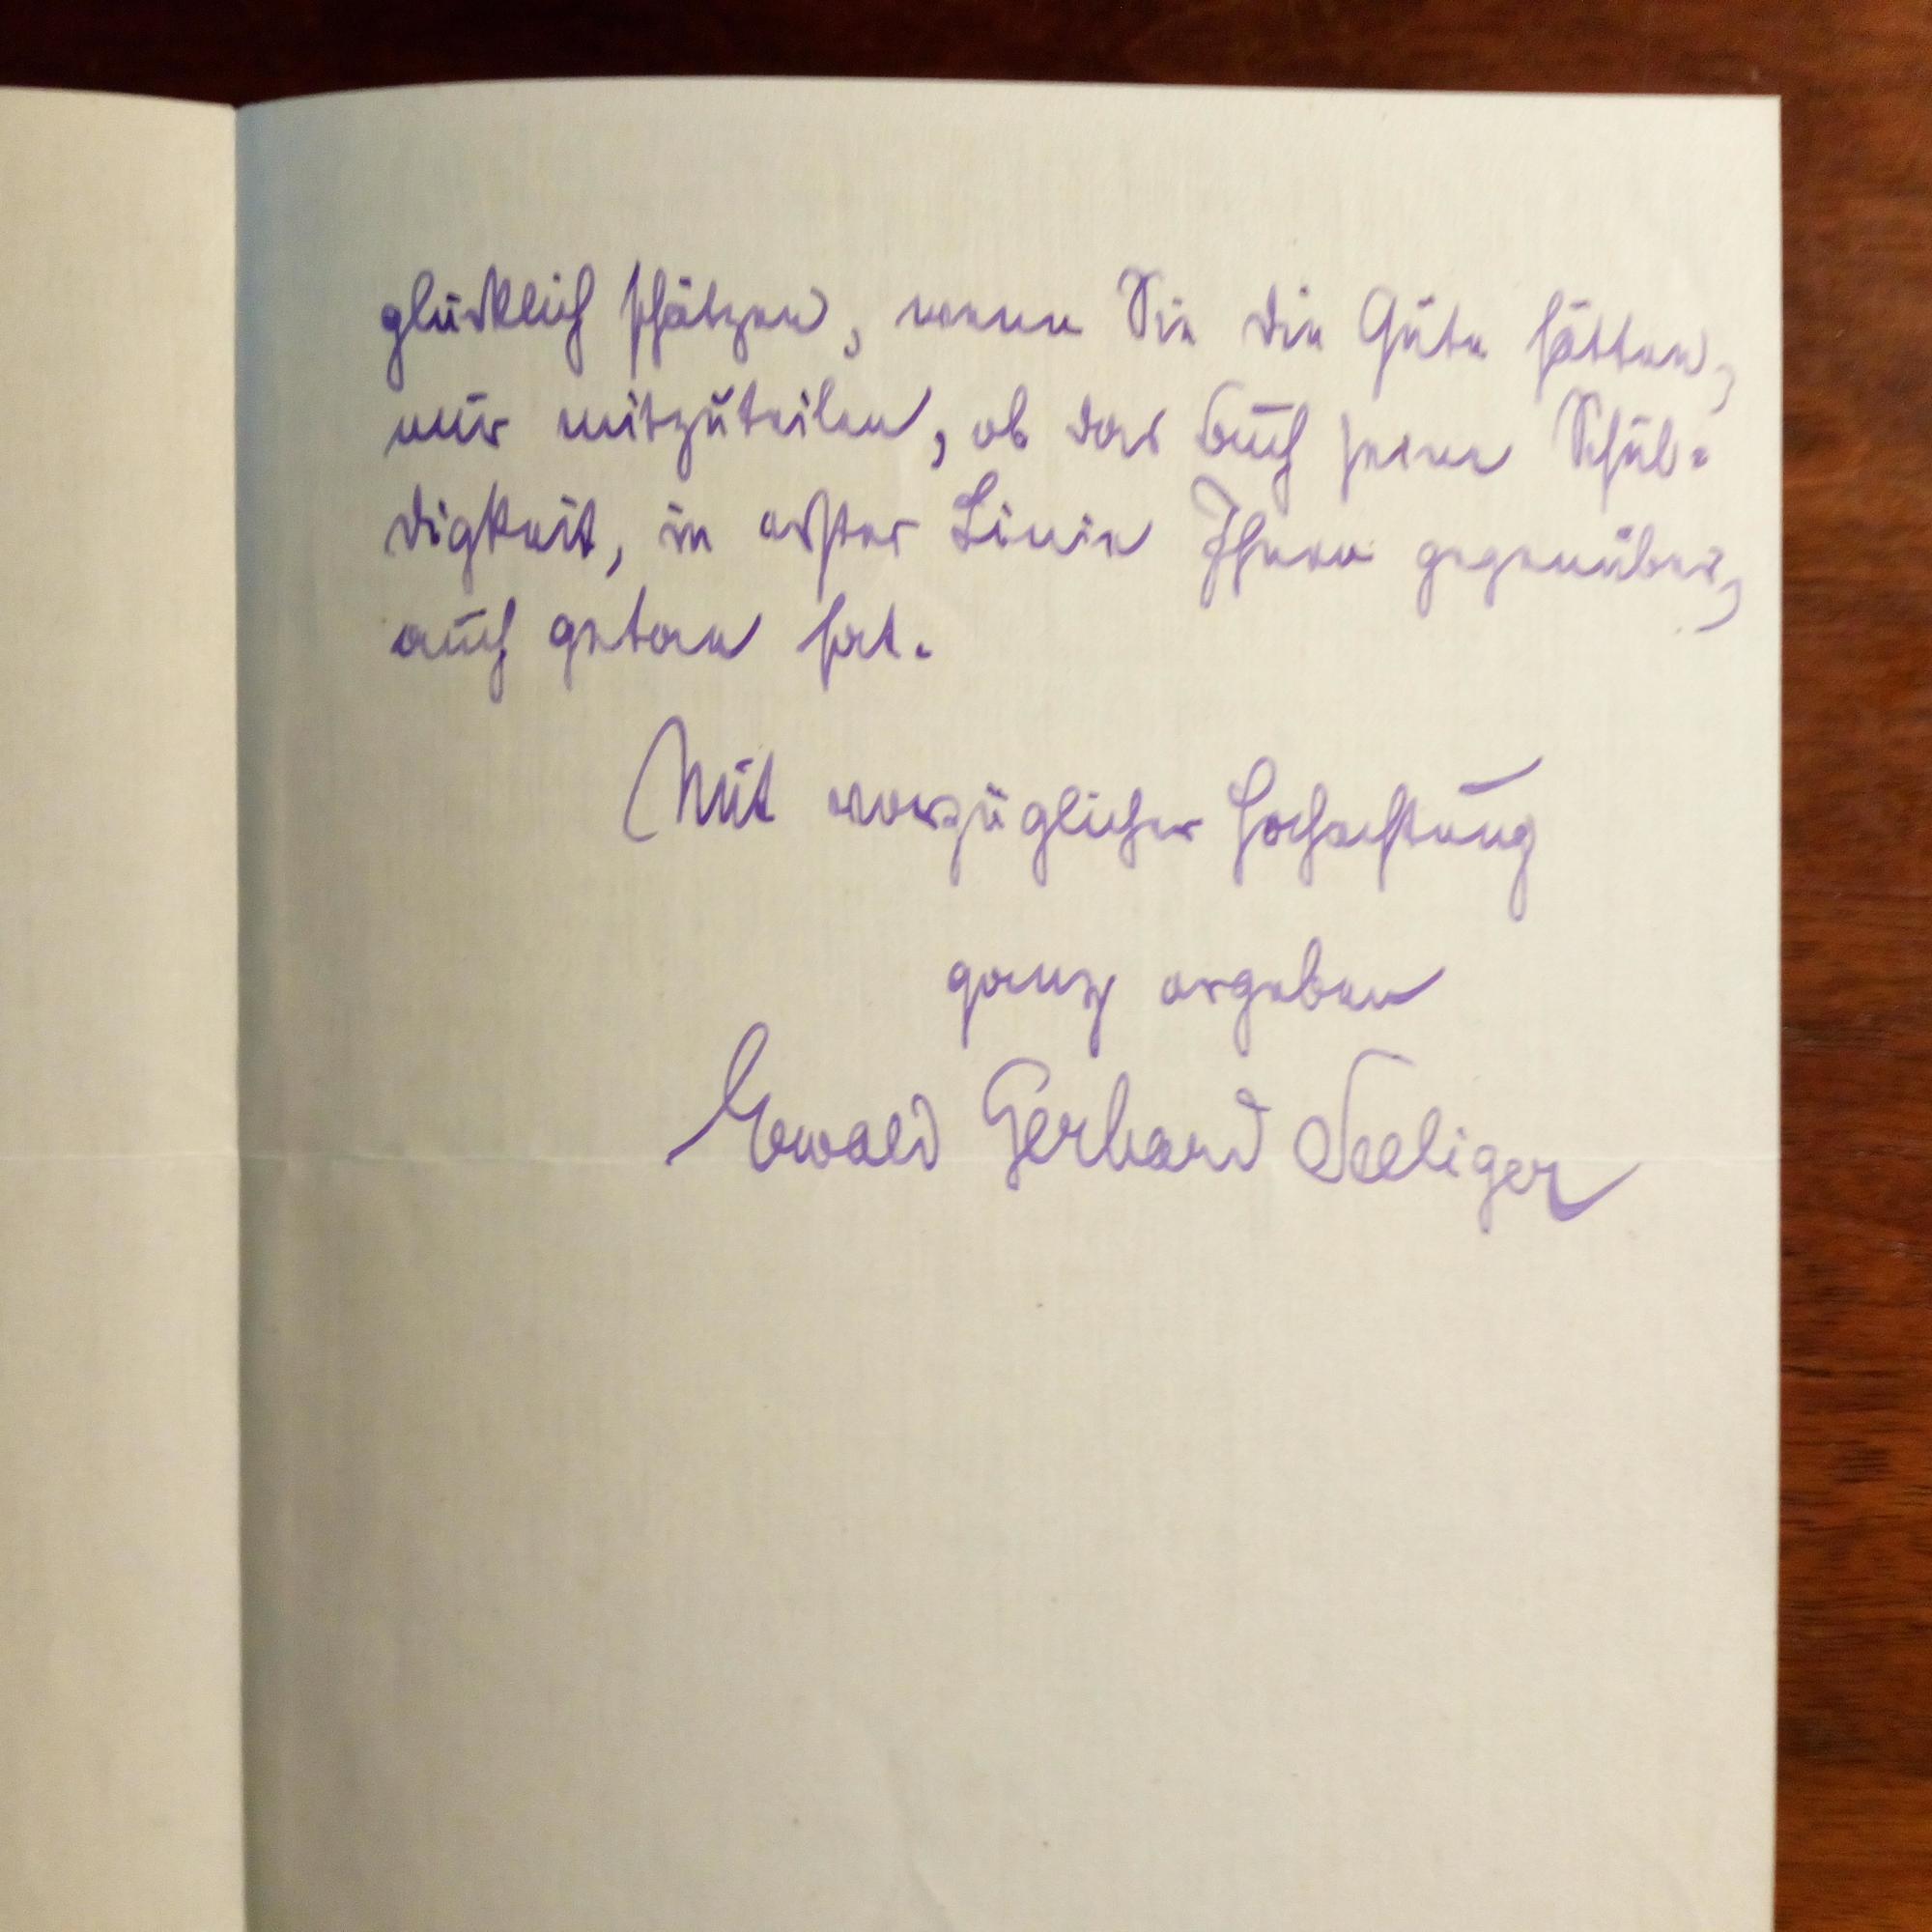 glücklich schätzen, wenn Sie die Güte hätten,
mir mitzuteilen, ob das Buch seine Schul-
digkeit, in erster Linie Ihnen gegenüber,
auch getan hat.
Mit vorzüglicher Hochachtung
ganz ergeben
Ewald Gerhard Seeliger